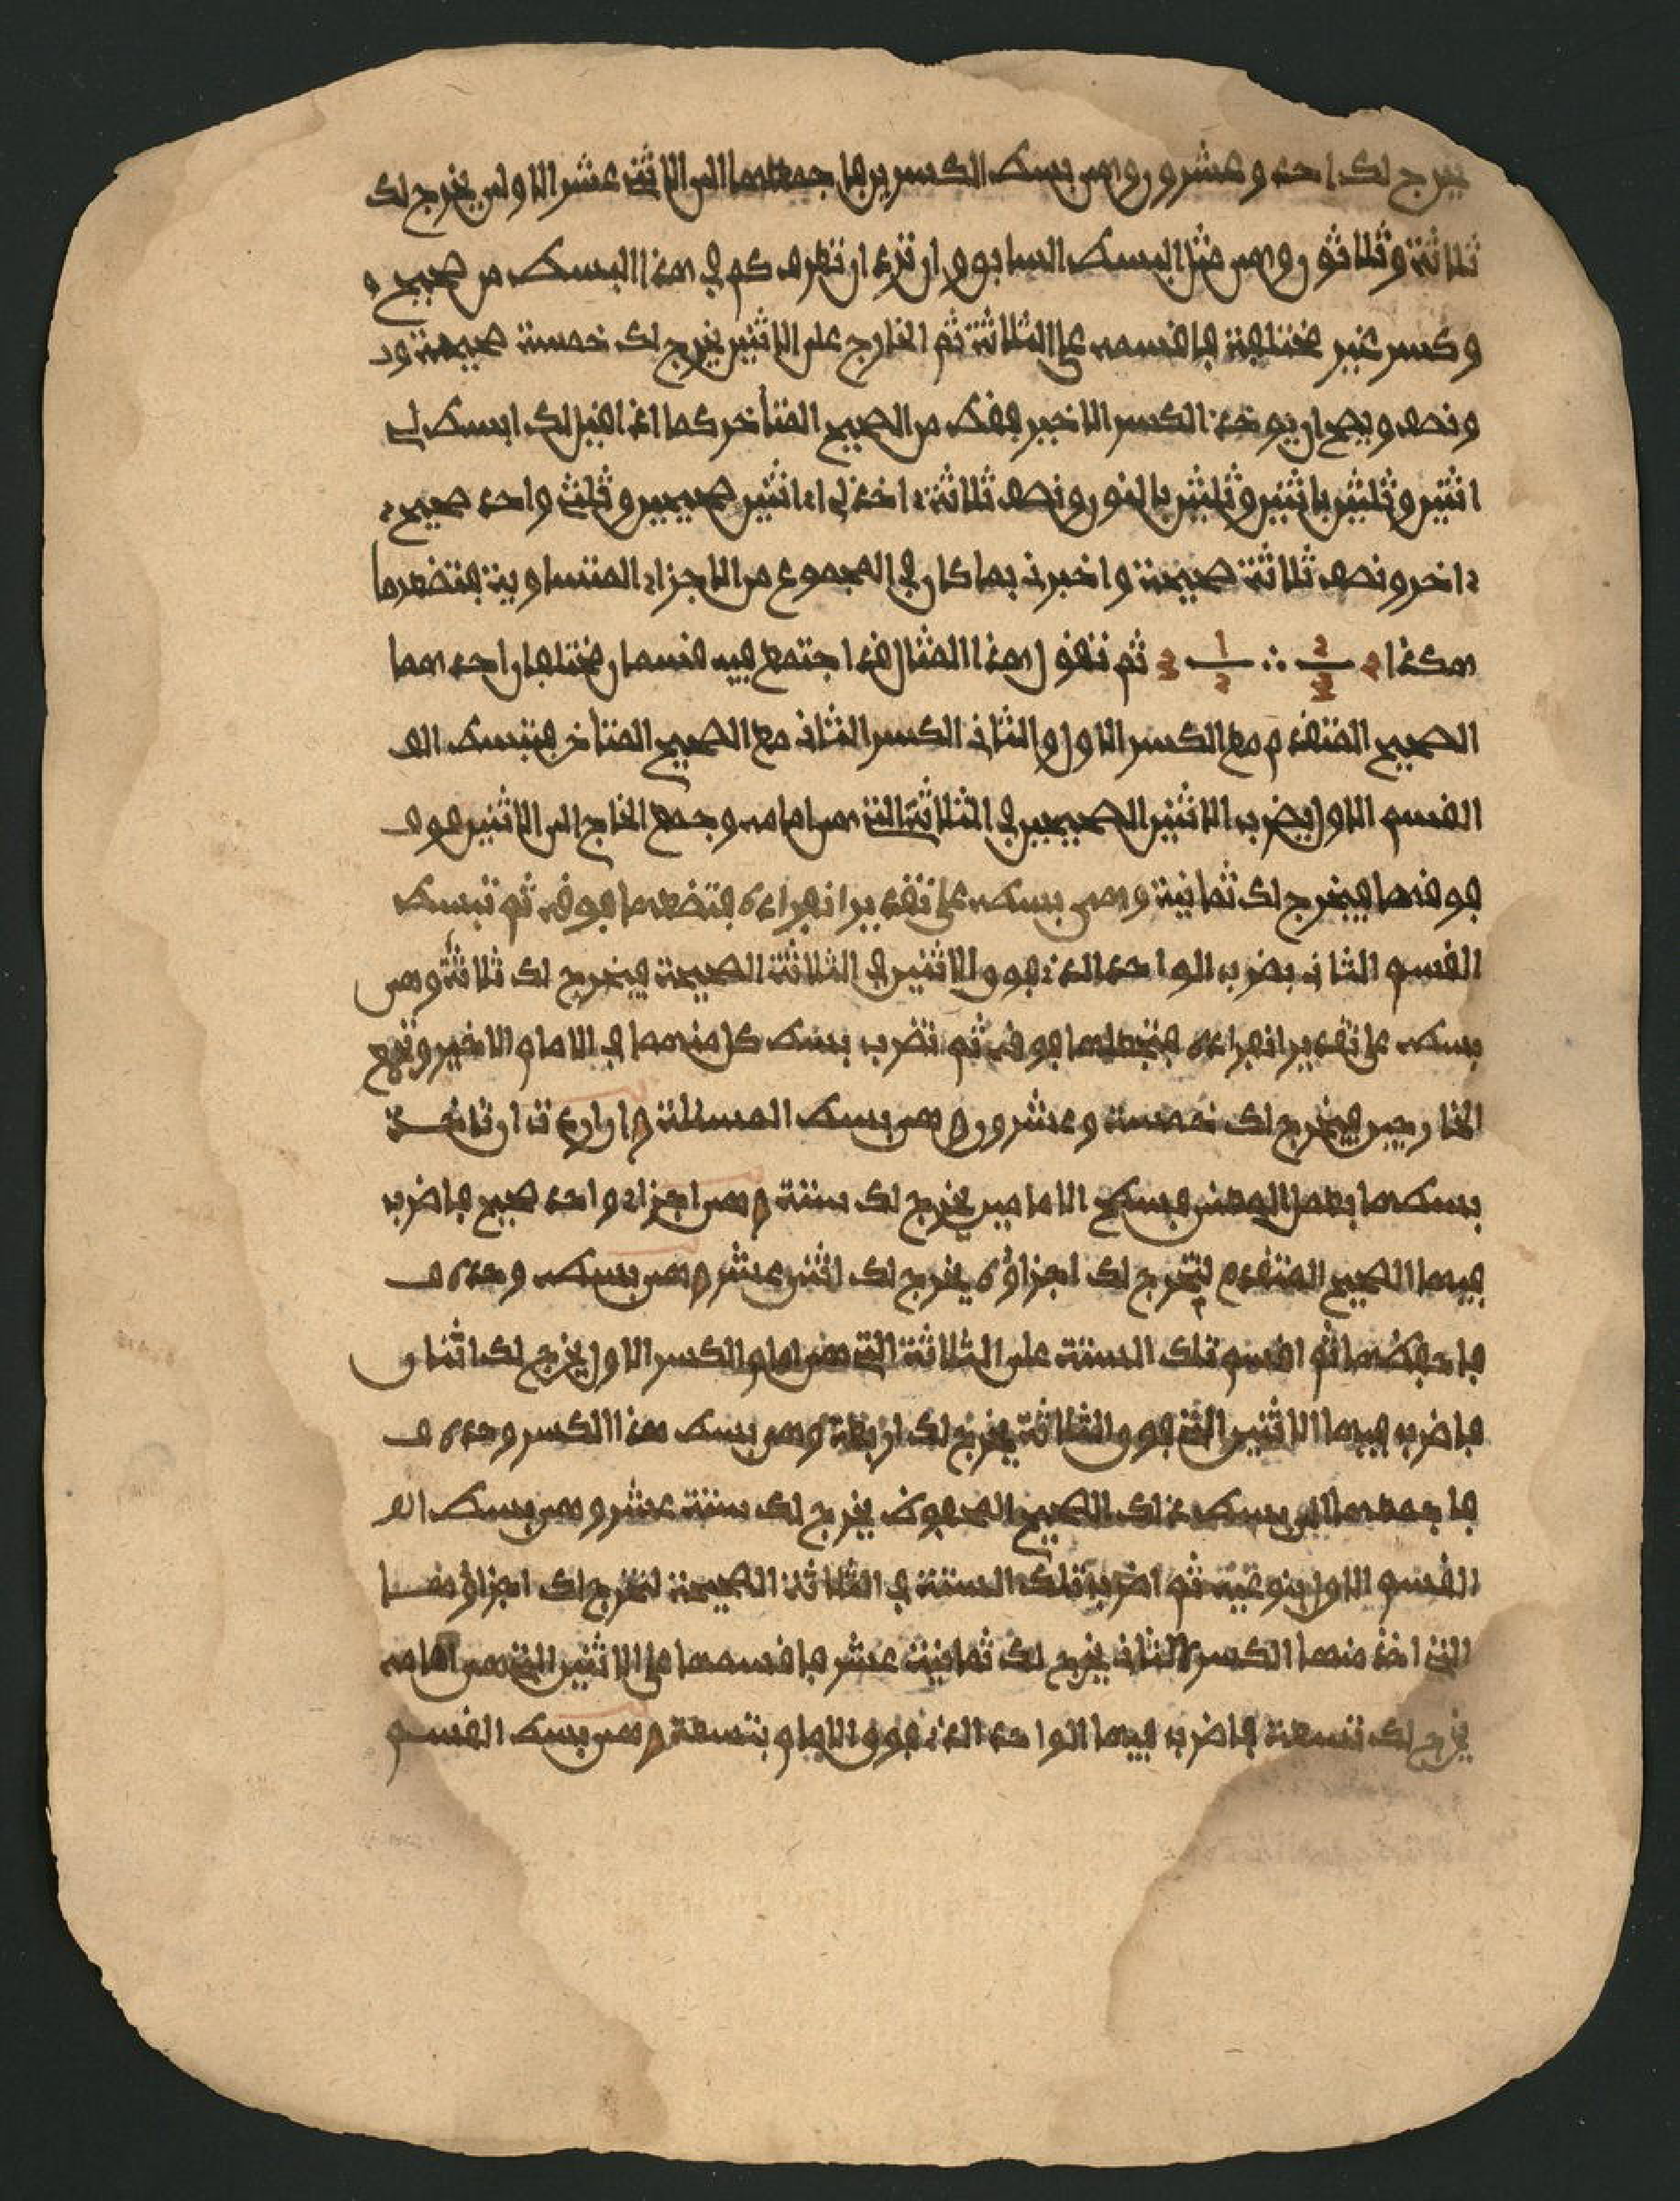 يخرج لك احد وعشرون وهي بسط الكسرين فاجمعهما الى الاثنى عشر الاولى يخرج لك
ثلاثة وثلاثون وهي مثل البسط السابق وان ترد ان تعرف كم في هذا البسط من صحيح
وكسر غير مختلفة فاقسمه على الثلاثة ثم الخارج على الاثنين يخرج لك خمسة صحيحة و
ونصف ويصح ان يوخذ الكسر الاخير فقط من الصحيح المتأخر كما اذا قيل لك ابسط لي
اثنين وثلثين باثنين وثلثين بالنون ونصف ثلاثة اخذ لي اثنين صحيحين وثلث واحد صحيح
اخر ونصف ثلاثة صحيحة واخبرني بما كان في المجموع من الاجزاء المتساوية فتضعهما
هكذا ٢ ٢ ٣ ∴ ١ ٢ ٣ ثم تقول هذا المثال قد اجتمع فيه قسمان مختلفان احدهما
الصحيح المتقدم مع الكسر الاول والثاني الكسر الثاني مع الصحيح المتأخر فتبسط
القسم الاول بضرب الاثنين الصحيحين في الثلاثة التي هي امامه وجمع الخارج الى الاثنين فوق
فوقها فيخرج لك ثمانية وهي بسطه على تقدير انفراده فتضعها فوقه ثم تبسط
القسم الثاني بضرب الواحد الذي فوق الاثنين في الثلاثة الصحيحة فيخرج لك ثلاثة وهي
بسطه على تقدير انفراده فتجعلها فوقه ثم تضرب بسط كل منهما في الامام الاخير وتجمع
الخارجين فيخرج لك خمسة وعشرون وهي بسط المسئلة وان اردت ان تاخذ
بسطها بعمل البعض فبسط الامامين يخرج لك ستة وهي اجزاء واحد صحيح فاضرب
فيها الصحيح المتقدم لتخرج لك اجزاؤه يخرج لك اثنى عشر وهي بسطه وحده
فاحفظها ثم اقسم تلك الستة على الثلاثة التي هي امام الكسر الاول يخرج لك اثنان
فاضرب فيهما الاثنين التي فوق الثلاثة يخرج لك اربعة وهي بسط هذا الكسر وحده
فاجمعها الى بسط ذلك الصحيح المحفوظ يخرج لك ستة عشر وهي بسط
القسم الاول بنوعيه ثم اضرب تلك الستة في الثلاثة الصحيحة لتخرج لك اجزاؤها
التي اخذ منها الكسر الثاني يخرج لك ثمانية عشر فاقسمها على الاثنين التي هي امامه
يخرج لك تسعة فاضرب فيها الواحد الذي فوق الامام بتسعة وهي بسط القسم